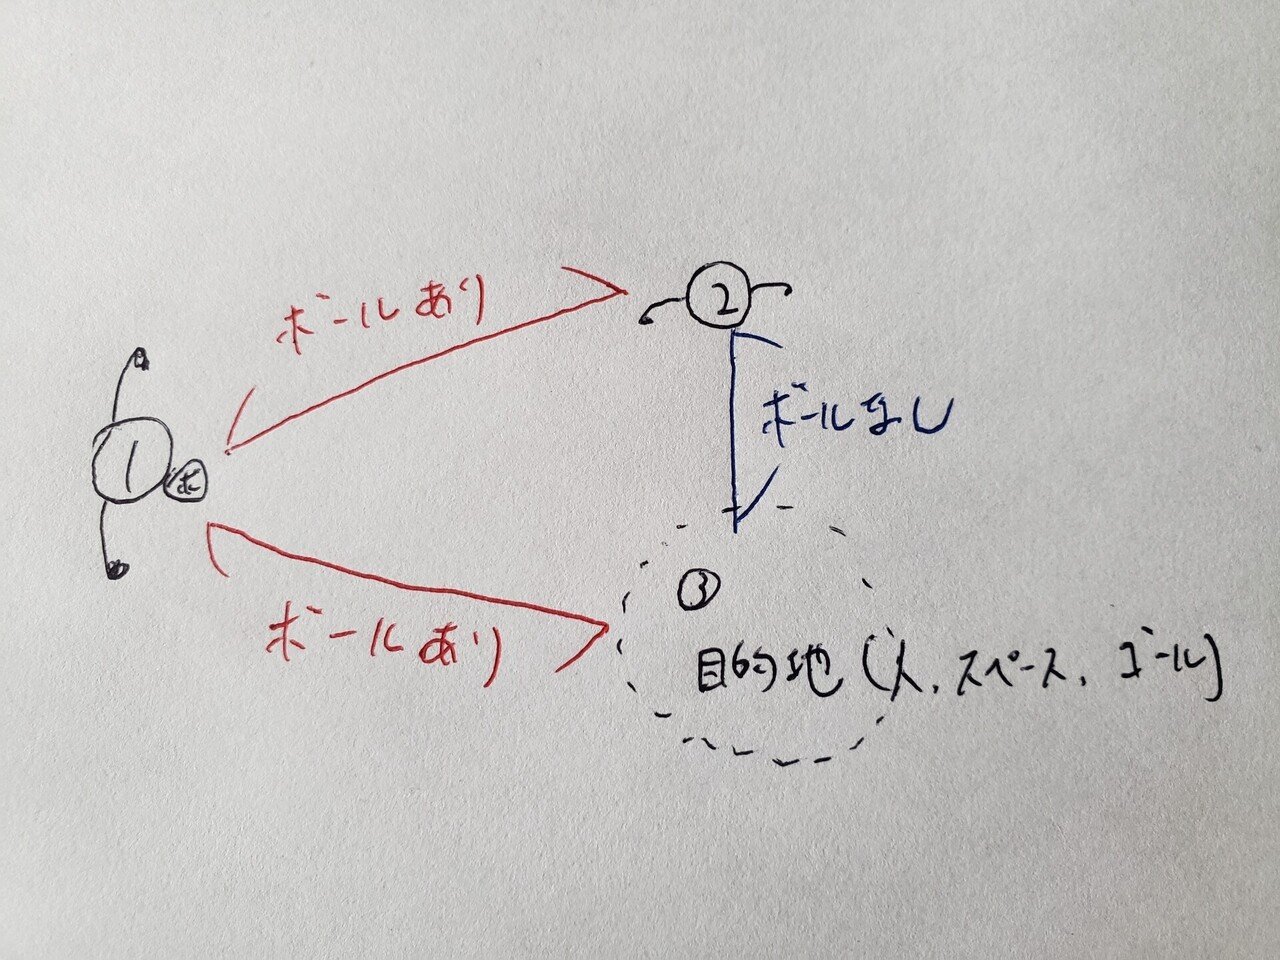 ボールあり
②
①
ボ
ボールなし
③
ボールあり
目的地(人、スペース、ゴール)